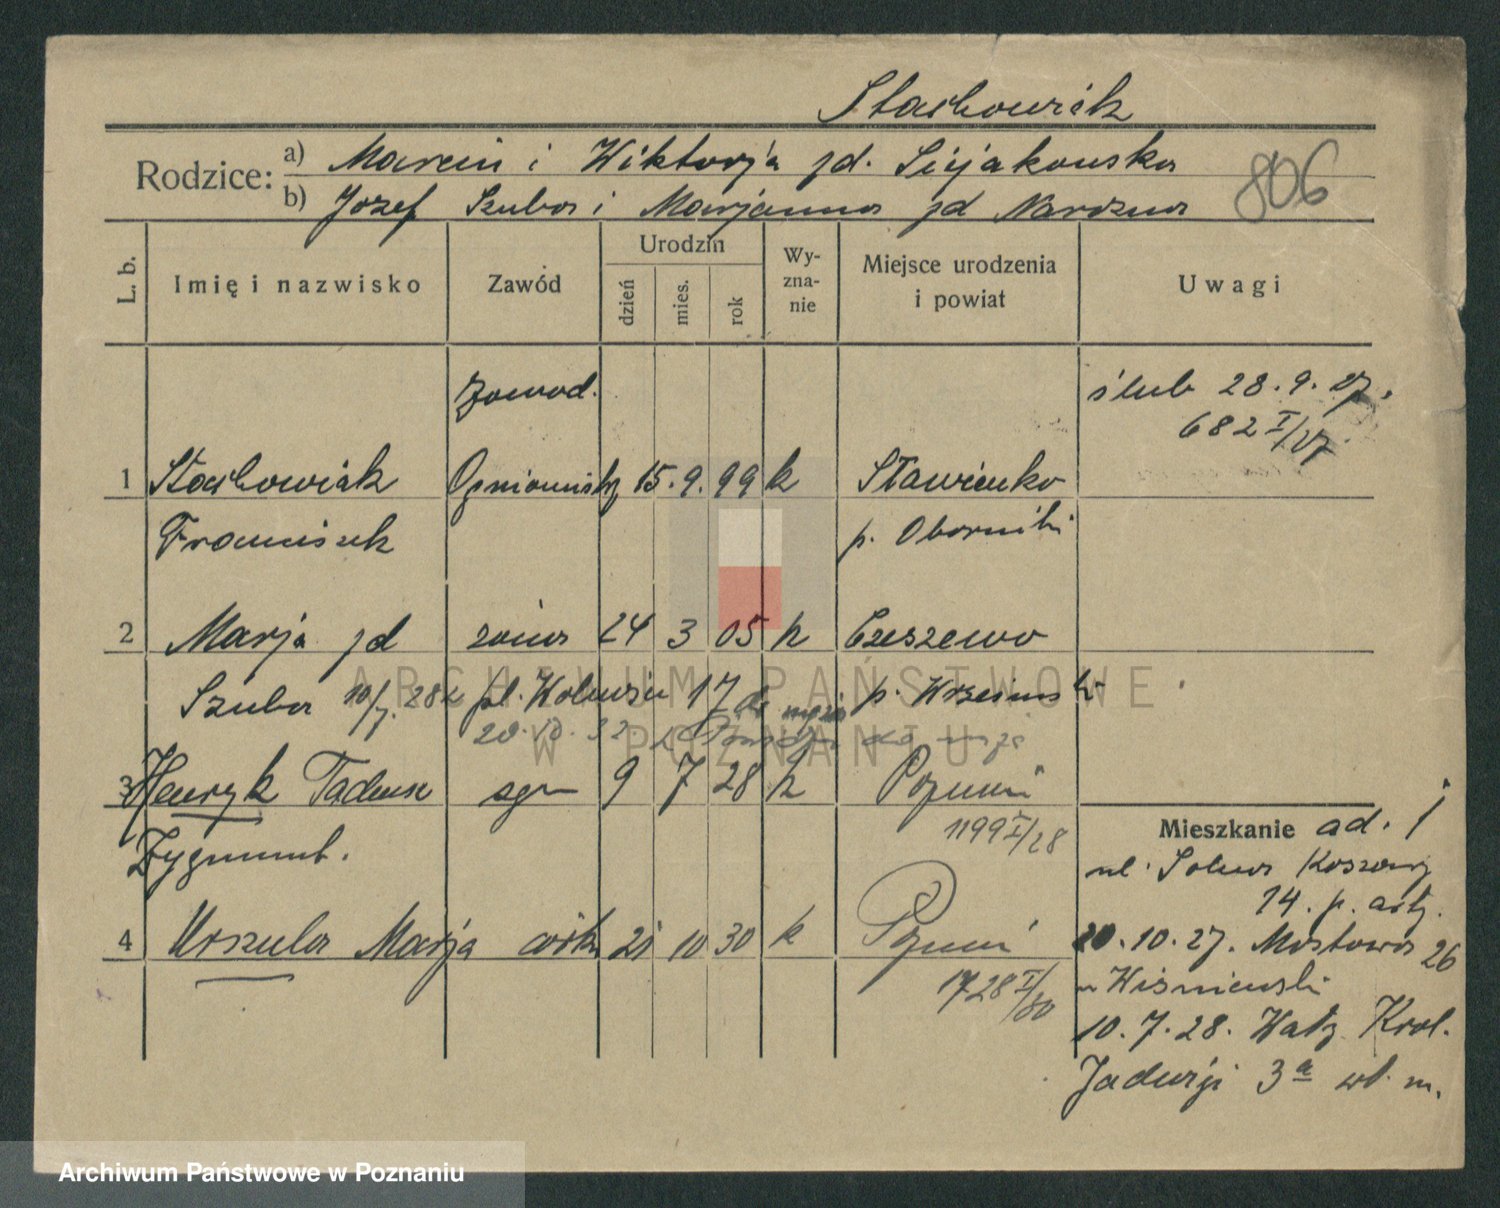 Stachowiak
Rodzice: a) Marcin i Wiktorja zd. Sijakowska
b) Józef Szuba i Marjanna zd Narożna
806
L. b.
Imię i nazwisko
Zawód
Urodzin
dzień
mies.
rok
Wy-
zna-
nie
Miejsce urodzenia
i powiat
Uwagi
zawod.
ślub 28.9.27.
682 I/27
1 Stachowiak Ogniomistrz 15. 9. 99 k Sławienko
Franciszek p. Oborniki
2 Marja zd żona 24 3 05 k Czeszewo
Szuba 10/7. 282 pl. 17 do męża p. Września
20. 10. 32. do męża
3 Henryk Tadeusz syn 9 7 28 k Poznań
1199 I/28
Zygmunt.
4 Urszula Marja córka 21 10 30 k Poznań
1728 I/30
Mieszkanie ad. 1
ul. Koszary
14. p. art.
20.10.27. Mostowa 26
u Wiśniewski
10.7.28. Wały Król.
Jadwigi 3a wł. m.
ARCHIWUM PAŃSTWOWE
W POZNANIU
Archiwum Państwowe w Poznaniu